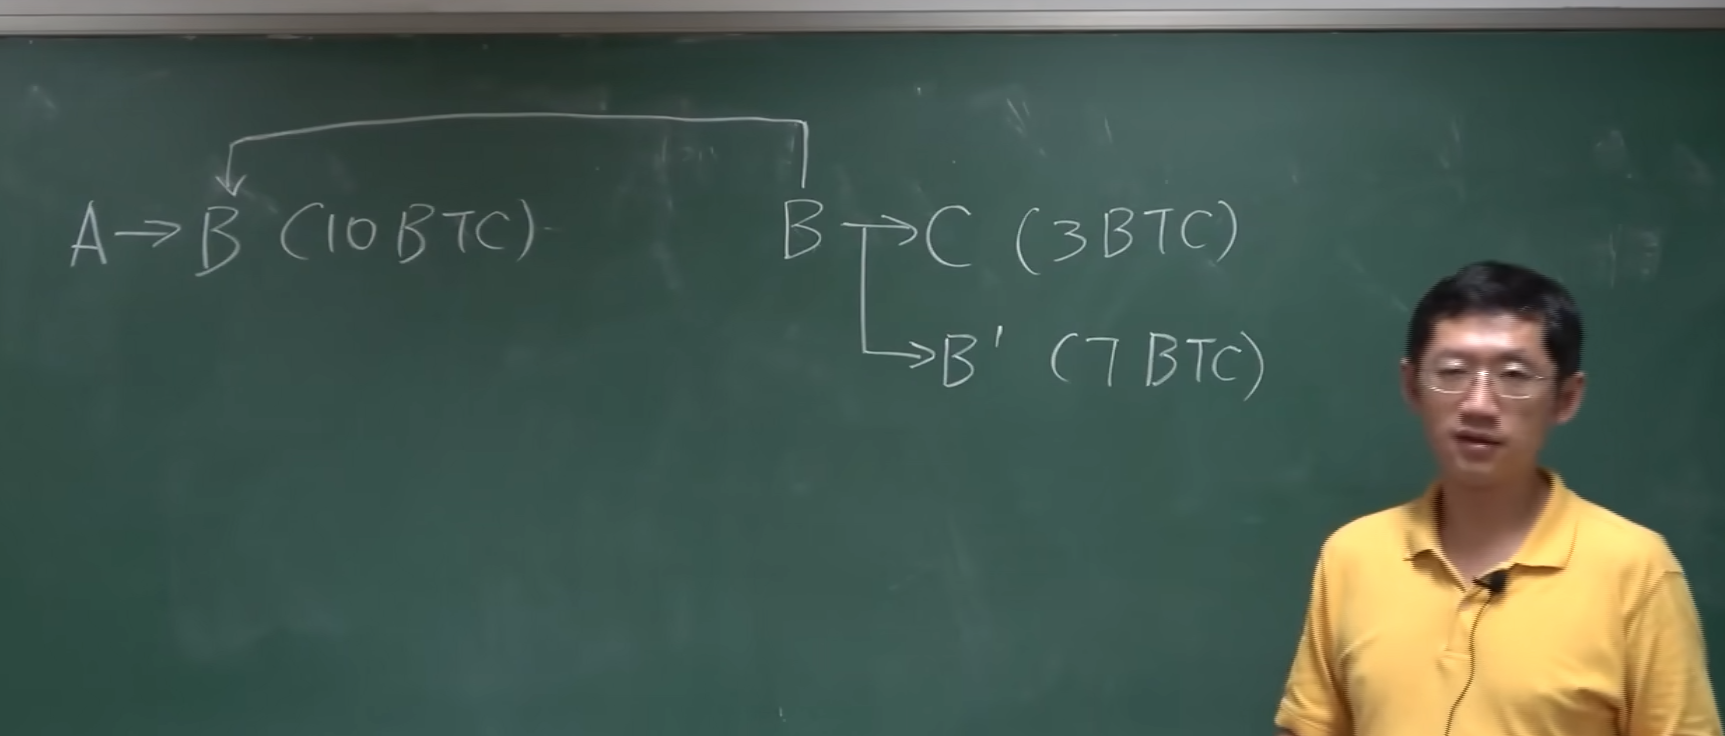 A → B (10 BTC) B → C (3 BTC)
→ B' (7 BTC)